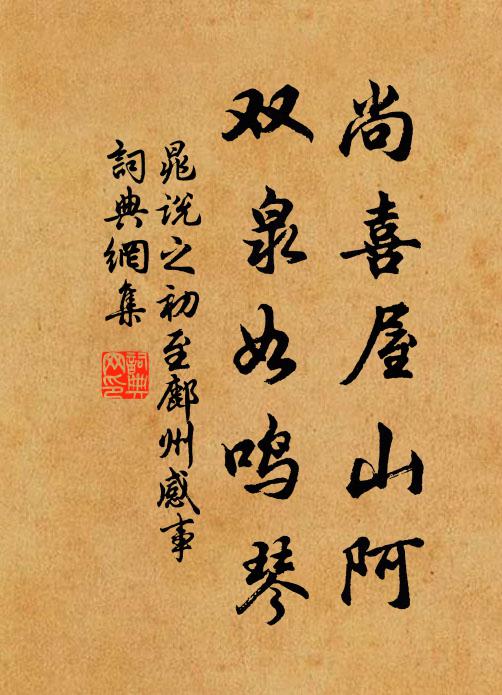 尚喜屋山阿
双泉如鸣琴
晁说之初至鄜州感事
詞典網集
詞典网印